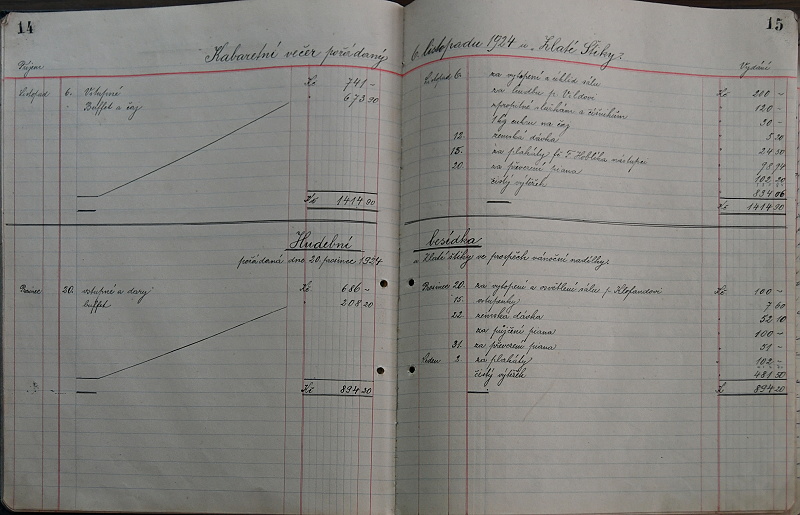 14
Kabaretní večer pořádaný
Příjem
Listopad 6. Vstupné Kč 741 –
" Buffet a čaj " 673.90
Kč 1414.90
Hudební
pořádaná dne 20. prosince 1924
Prosinec 20. vstupné a dary Kč 686 –
buffet " 208.20
Kč 894.20
15
6. listopadu 1924 u „Zlaté Štiky"
Vydání
Listopad 6. za vytopení a úklid sálu Kč 200 –
za hudbu p. " 120 –
" 30 –
1 kg cukru na čaj " 5.20
12. zemská dávka " 24.50
15. za plakáty fě F. nástupce " 98.94
20. za převezení piana " 102.20
čistý výtěžek " 834.06
Kč 1414.90
besídka
u Zlaté štiky ve prospěch vánoční nadílky.
Prosinec 20. za vytopení a osvětlení sálu p. Klofandovi Kč 100 –
15. vstupenky " 7.60
22. zemská dávka " 52.10
za půjčení piana " 100 –
31. za převezení piana " 51 –
Leden 2. za plakáty " 102 –
čistý výtěžek " 481.50
K 894.20